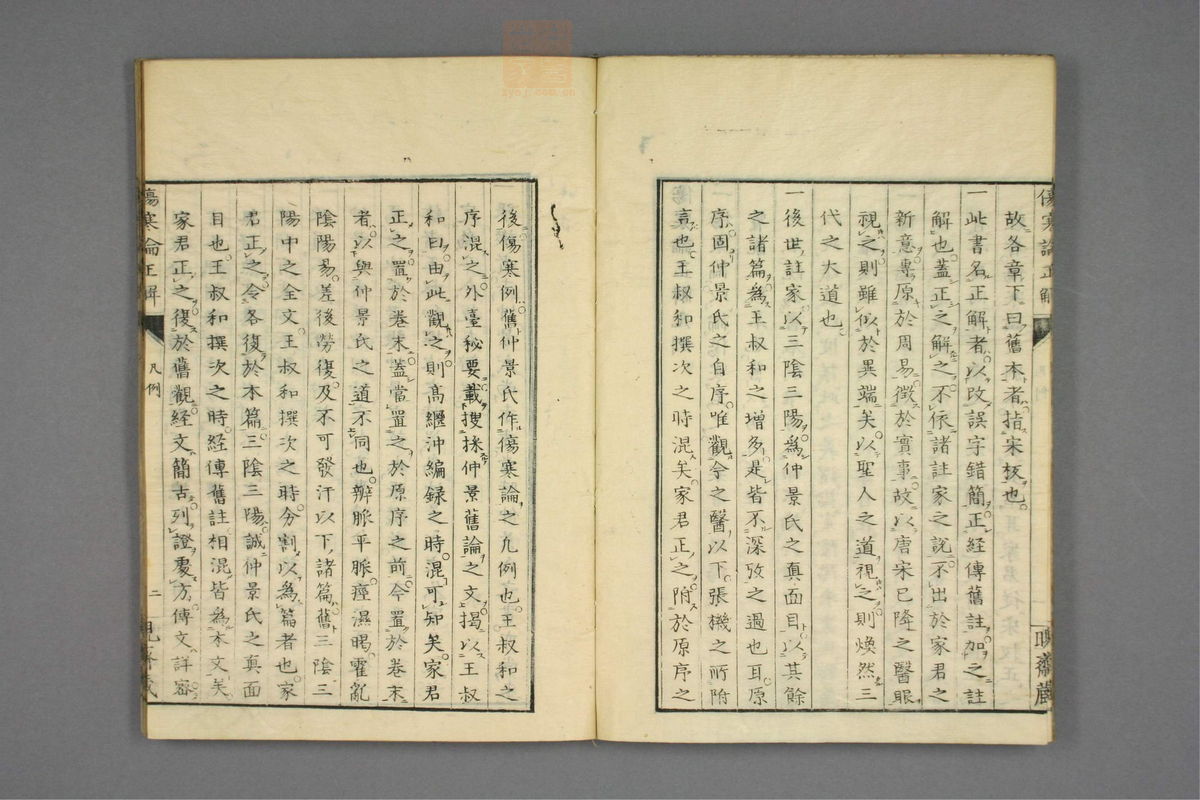 故各章下曰舊本者指宋板也
一此書名正解者以改誤字錯簡正經傳舊註加之註
解也蓋正之解之不依諸註家之說不出於家君之
新意專原於周易徵於實事故以唐宋已降之醫眼
視之則雖似於異端矣以聖人之道視之則煥然三
代之大道也
一後世註家以三陰三陽為仲景氏之真面目以其餘
之諸篇為王叔和之增多是皆不深攷之過也耳原
序固仲景氏之自序唯觀今之醫以下張機之所附
言也王叔和撰次之時混矣家君正之附於原序之
傷寒論正解
後傷寒例舊仲景氏作傷寒論之凡例也王叔和之
序混之外臺秘要載搜採仲景舊論之文揭以王叔
和曰由此觀之則高繼沖編錄之時混可知矣家君
正之置於卷末蓋當置之於原序之前今置於卷末
者以與仲景氏之道不同也辨脈平脈痙濕暍霍亂
陰陽易差後勞復及不可發汗以下諸篇舊三陰三
陽中之全文王叔和撰次之時分割以為篇者也家
君正之令各復於本篇三陰三陽誠仲景氏之真面
目也王叔和撰次之時經傳舊註相混皆為本文矣
家君正之復於舊觀經文簡古列證處方傳文詳密
傷寒論正解 凡例 二
zyjf.com.cn